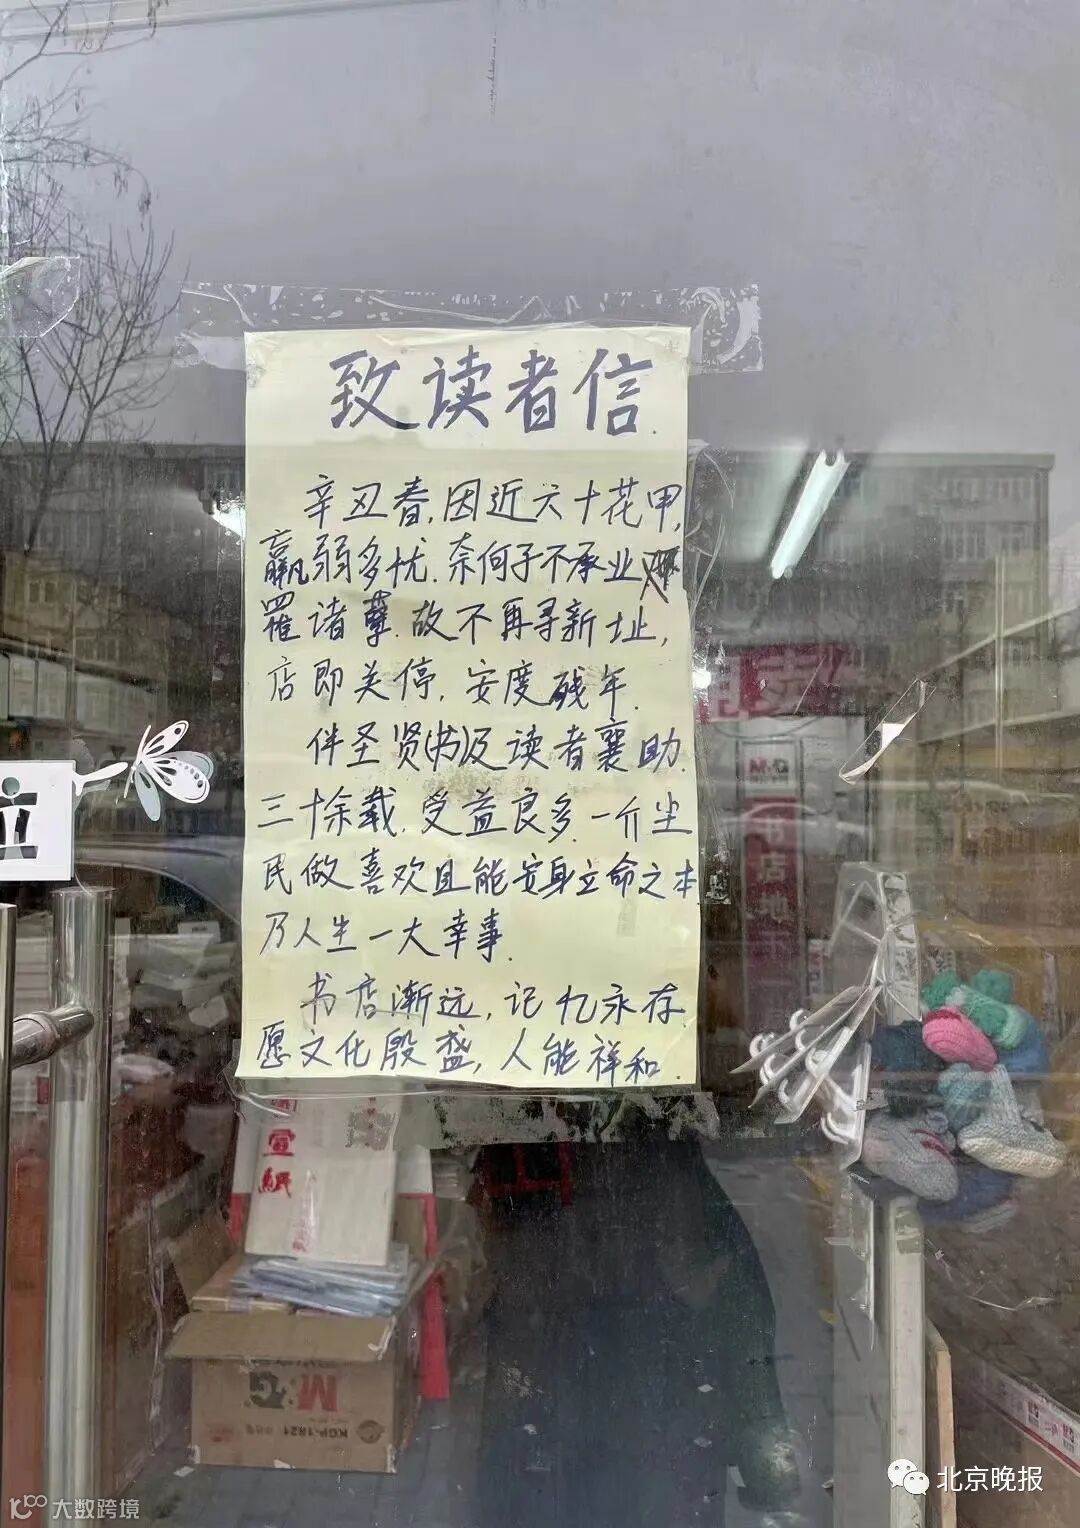 致读者信.
辛丑春,因近六十花甲,
羸弱多忧.奈何子不承业
罹诸孽.故不再寻新址,
店即关停,安度残年.
伴圣贤(书)及读者襄助.
三十余载,受益良多.一介尘
民做喜欢且能安身立命之本
乃人生一大幸事.
书店渐远,记忆永存.
愿文化殷盛,人能祥和.
宣紙
M&G
KGP-1821
店
立
北京晚报
大数跨境